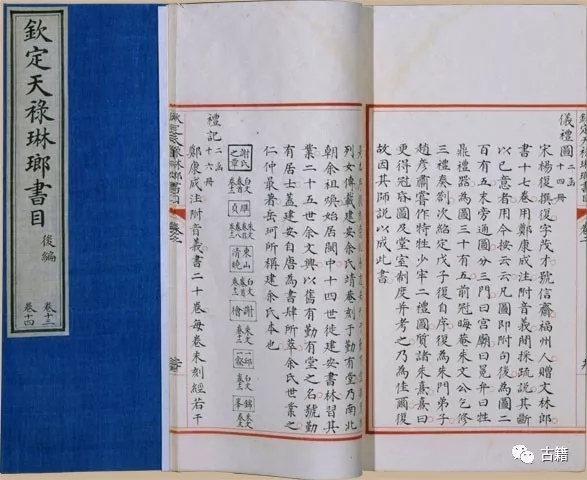 欽定天祿琳瑯書目 後編
卷十三
卷十四
儀禮圖 二函 十四冊
宋楊復撰復字茂才號信齋福州人贈文林郎
書十七卷用鄭康成注附音義間採疏說其斷
以己意者用今按云云凡圖即附句後為圖二
百有五末旁通圖分三門曰宮廟曰冕弁曰牲
鼎禮器為圖三十有五前冠晦菴朱文公乞修
三禮奏劄次紹定戊子復自序復為朱門弟子
趙彥肅嘗作特牲少牢二禮圖質諸朱熹熹曰
更得冠昏圖及堂室制度并考之乃為佳爾復
故因其師說以成此書
列女傳載建安余氏靖菴刻于勤有堂乃南北
朝余祖煥始居閩中十四世徙建安書林習其
業二十五世余文興以舊有勤有堂之名號勤
有居士蓋建安自唐為書肆所萃余氏世業之
仁仲最著岳珂所稱建余氏本也
謝氏之章 白文 貞 朱文 東山清曉 白文 謝 朱文 一 白文 錦峯 朱文
禮記 二函 十六冊
鄭康成注附音義書二十卷每卷末刻經若干
古籍